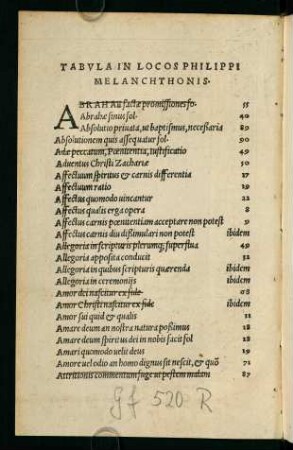 TABVLA IN LOCOS PHILIPPI
MELANCHTHONIS.
ABRAHAE factæ promissiones fo. 55
Abrahæ sinus fol. 40
Absolutio priuata, ut baptismus, necessaria 89
Absolutionem quis assequatur fol. 90
Adæ peccatum, Pœnitentia, iustificatio 49
Aduentus Christi Zachariæ 50
Affectuum spiritus & carnis differentia 17
Affectuum ratio 19
Affectus quomodo uincantur 22
Affectus qualis erga opera 8
Affectus carnis pœnitentiam acceptare non potest 9
Affectus carnis diu dissimulari non potest ibidem
Allegoria in scripturis plerumq; superflua 49
Allegoria apposita conducit 52
Allegoria in quibus scripturis quærenda ibidem
Allegoria in ceremonijs ibidem
Amor dei nascitur ex fide 68
Amor Christi nascitur ex fide ibidem
Amor sui quid & qualis 11
Amare deum an nostra natura possimus 18
Amare deum spiritus dei in nobis facit fol 18
Amari quomodo uelit deus 19
Amore uel odio an homo dignus sit nescit, & quō 71
Attritionis commentum fuge ut pestem malam 87
Gf 520 R